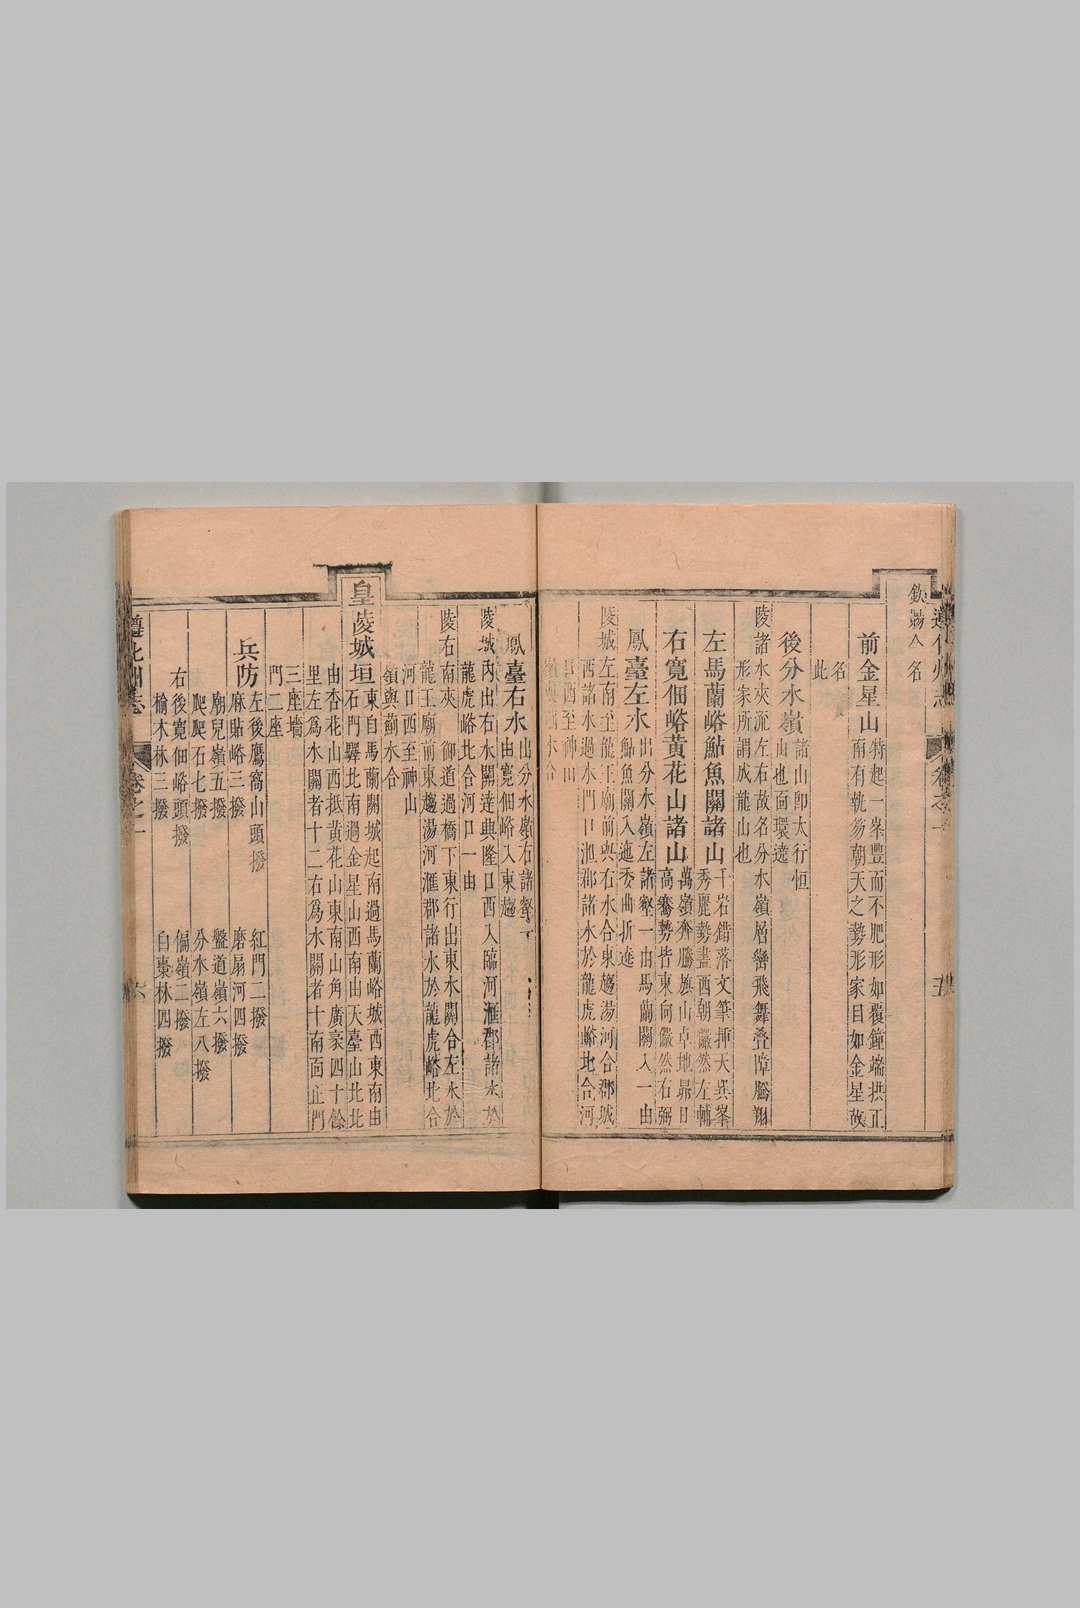 遵化州志 卷之一 五
欽賜今名
前金星山
特起一峯豐而不肥形如覆鐘端拱正
南有執笏朝天之勢形家目如金星故
名
此
後分水嶺
諸山卽太行恒
山也面環遶
陵諸水夾流左右故名分水嶺層巒飛舞叠障騰翔
形家所謂成龍山也
左馬蘭峪鮎魚關諸山
千岩錯落文筆揷天異峯
秀麗勢盡西朝儼然左輔
右寬佃峪黃花山諸山
萬嶺奔騰旗山卓地昴日
高騫勢皆東向儼然右弼
鳳臺左水
出分水嶺左諸壑一由馬蘭關入一由
鮎魚關入逶委曲折遶
陵城左南至龍王廟前與右水合東趨湯河合郡城
西諸水過水門口滙郡諸水於龍虎峪北合河
口西至神山
嶺與薊水合
鳳臺右水
出分水嶺右諸壑
由寬佃峪入東趨
陵城內出右水關達興隆口西入臨河滙郡諸水於
龍虎峪北合河口一由
陵右南夾 御道過橋下東行出東水關合左水於
龍王廟前東趨湯河滙郡諸水於龍虎峪北合
河口西至神山
嶺與薊水合
皇陵城垣
東自馬蘭關城起南過馬蘭峪城西東南由
石門驛北南過金星山西南由天臺山北北
由杏花山西抵黃花山東南山角廣袤四十餘
里左爲水關者十二右爲水關者十南面正門
三座墻
門二座
兵防
左後鷹窩山頭撥 紅門二撥
麻貼峪三撥 磨扇河四撥
廟兒嶺五撥 盤道嶺六撥
爬爬石七撥 分水嶺左八撥
右後寬佃峪頭撥 偏嶺二撥
榆木林三撥 白棗林四撥
遵化州志 卷之一 六